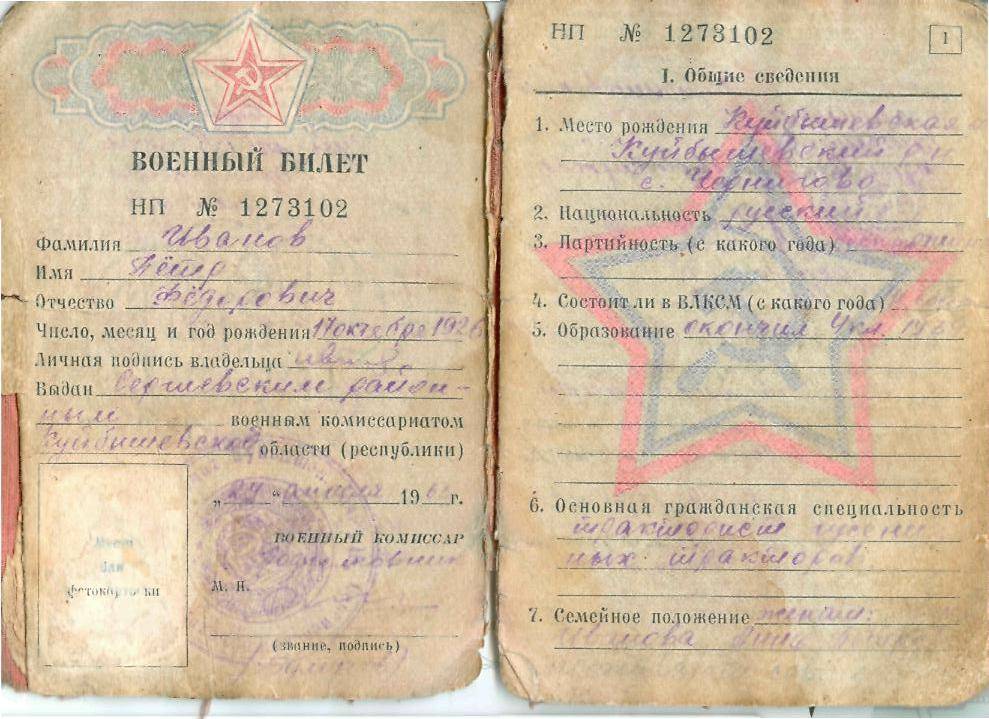 ВОЕННЫЙ БИЛЕТ
НП № 1273102
Фамилия Иванов
Имя Пётр
Отчество Фёдорович
Число, месяц и год рождения 17 октября 1926
Личная подпись владельца
Выдан Сергиевским район-
ным военным комиссариатом
Куйбышевской области (республики)
„24“ 19 г.
ВОЕННЫЙ КОМИССАР
подполковник
М. П.
(звание, подпись)
Место
для
фотокарточки
НП № 1273102
1
I. Общие сведения
1. Место рождения Куйбышевская
Куйбышевский
с.
2. Национальность русский
3. Партийность (с какого года)
4. Состоит ли в ВЛКСМ (с какого года)
5. Образование окончил 4 кл.
6. Основная гражданская специальность
тракторист гусенич
ных тракторов
7. Семейное положение женат:
Иванова Анна